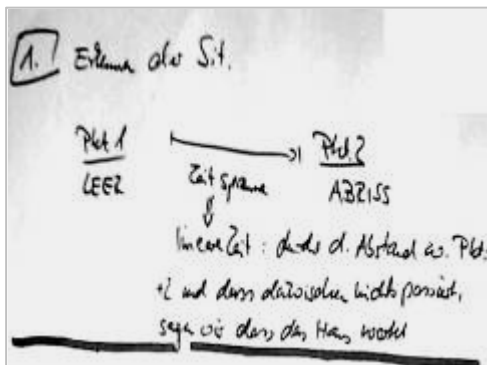 1. Erkennen der Sit.
Pkt. 1 Pkt. 2
LEER Zeitspanne ABRISS
lineare Zeit: durch d. Abstand zw. Pkt.
+2 und dass dazwischen nichts passiert,
sagen wir dass das Haus